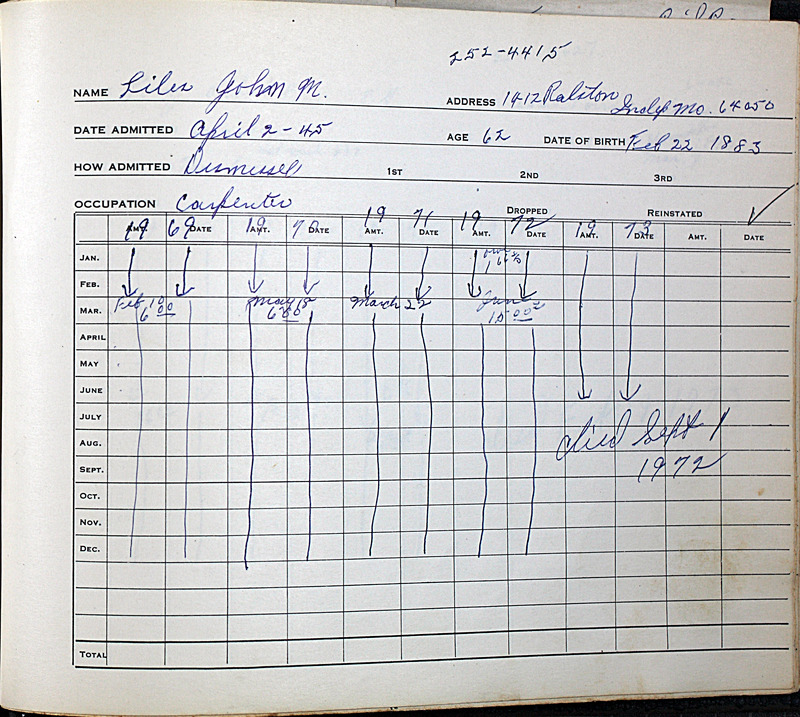 252-4415
NAME Liles John M.
ADDRESS 1412 Ralston Indep Mo. 64050
DATE ADMITTED April 2-45
AGE 62 DATE OF BIRTH Feb 22 1883
HOW ADMITTED 1ST 2ND 3RD
OCCUPATION Carpenter
DROPPED REINSTATED
19 69 19 70 19 71 19 72 19 73
AMT. DATE AMT. DATE AMT. DATE AMT. DATE AMT. DATE AMT. DATE
JAN.
FEB.
MAR. Feb 10 May 15 March 22 June 2
6 00 6 00 15 00
APRIL
MAY
JUNE
JULY
AUG. died Sept 1
SEPT. 1972
OCT.
NOV.
DEC.
TOTAL